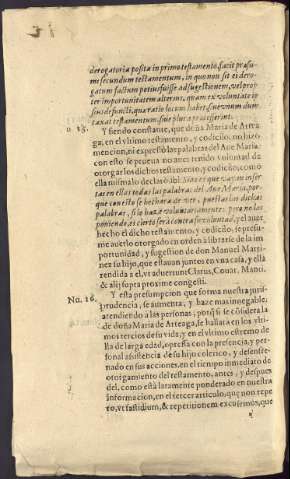 derogatoriæ positæ in primo testamento, facit præsu-
me secundum testamentum, in quo non sit ei dero-
gatum factum potius fuisse ad sugestionem, vel prop-
ter importunitatem alterius, quam ex voluntate ip
sius defuncti, qua ratio locum habet, siue vnum dum
taxat testamentum, siue plura præcesserint.
n. 15. Y siendo constante, que doña Maria de Artea-
ga, en el vltimo testamento, y codicilo, no hizo
mencion, ni expressò las palabras del Aue Maria,
con esto se prueua no auer tenido voluntad de
otorgar los dichos testamento, y codicilo, como
ella misma lo declarò ibi:
en ellas todas las palabras del Aue Maria, por-
que con esto se hecharà de ver, puestas las dichas
palabras, si lo hazè voluntariamente, pero no las
poniendo, es cierto serà contra su voluntad, y el auer
hecho el dicho testamento, y codicilo, se presu-
me auerlo otorgado en orden à librarse de la im
portunidad, y sugestion de don Manuel Marti-
nez su hijo, que estauan juntos en vna casa, y ella
rendida a el, vt aduertunt Clarus, Couar, Manti,
& alij supra proxime congesti.
Nu. 16. Y esta presumpcion que forma nuestra juris-
prudencia, se aumenta, y haze mas innegable,
atendiendo a las personas, porq̃ si se cõsidera la
de doña Maria de Arteaga, se hallarà en los vlti-
mos tercios de su vida, y en el vltimo estremo de
ella de larga edad, opressa con la presencia, y per-
sonal asistencia de su hijo colerico, y desenfre-
nado en sus acciones, en el tiempo inmediato de
otorgamiento del testamento, antes, y despues
del, como està laramente ponderado en nuestra
informacion, en el tercer articulo, que non repe-
to, vt fastidium, & repetitionem excusemus, que